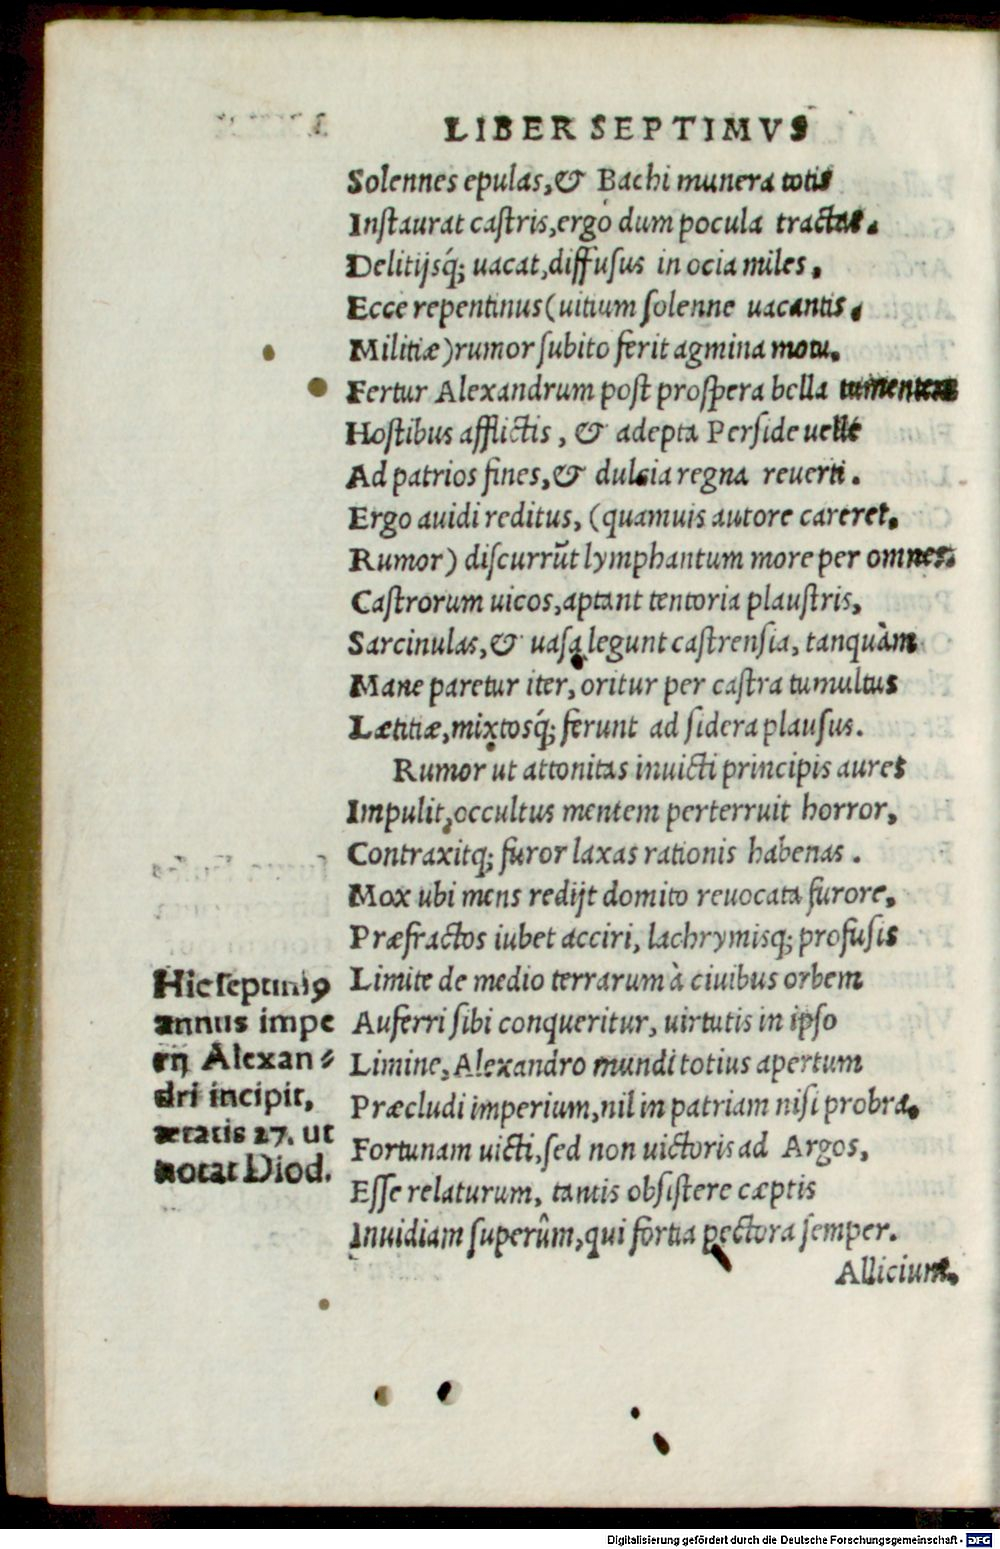 LIBER SEPTIMVS
Solennes epulas, & Bachi munera totis
Instaurat castris, ergò dum pocula tractat.
Delitijsq́; uacat, diffusus in ocia miles,
Ecce repentinus (uitium solenne uacantis.
Militiæ) rumor subito ferit agmina motu.
Fertur Alexandrum post prospera bella
Hostibus afflictis, & adepta Perside uelle
Ad patrios fines, & dulcia regna reuerti.
Ergo auidi reditus, (quamuis autore careret,
Rumor) discurrūt lymphantum more per omnes.
Castrorum uicos, aptant tentoria plaustris,
Sarcinulas, & uasa legunt castrensia, tanquàm
Mane paretur iter, oritur per castra tumultus
Lætitiæ, mixtosq́; ferunt ad sidera plausus.
Rumor ut attonitas inuicti principis aures
Impulit, occultus mentem perterruit horror,
Contraxitq; furor laxas rationis habenas.
Mox ubi mens redijt domito reuocata furore,
Præfractos iubet acciri, lachrymisq; profusis
Limite de medio terrarum à ciuibus orbem
Auferri sibi conqueritur, uirtutis in ipso
Limine, Alexandro mundi totius apertum
Præcludi imperium, nil in patriam nisi probra,
Fortunam uicti, sed non uictoris ad Argos,
Esse relaturum, tantis obsistere cæptis
Inuidiam superûm, qui fortia pectora semper.
Alliciunt.
Hic septimꝰ
annus impe
rij Alexan-
dri incipit,
ætatis 27. ut
notat Diod.
Digitalisierung gefördert durch die Deutsche Forschungsgemeinschaft - DFG